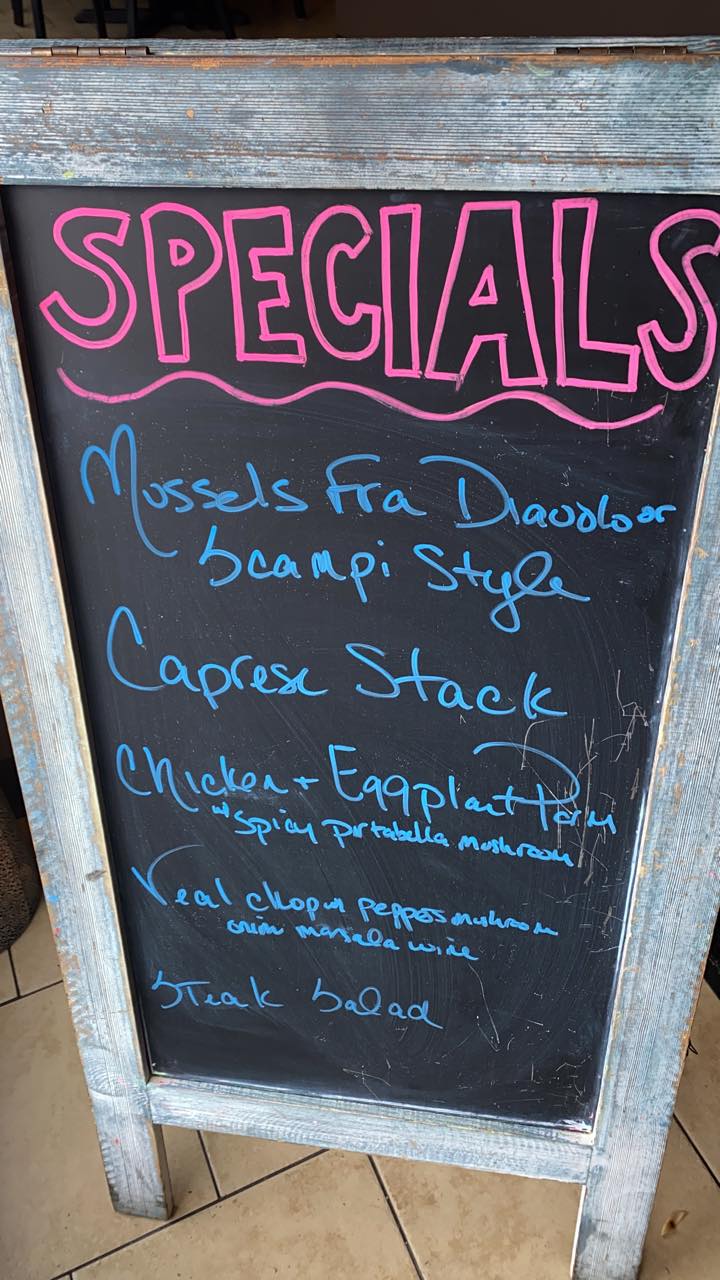 SPECIALS
Mussels Fra Diavolo or
Scampi Style
Caprese Stack
Chicken + Eggplant Parm
w/ Spicy portabella mushroom
Veal chop w/ peppers mushroom
onion marsala wine
Steak Salad